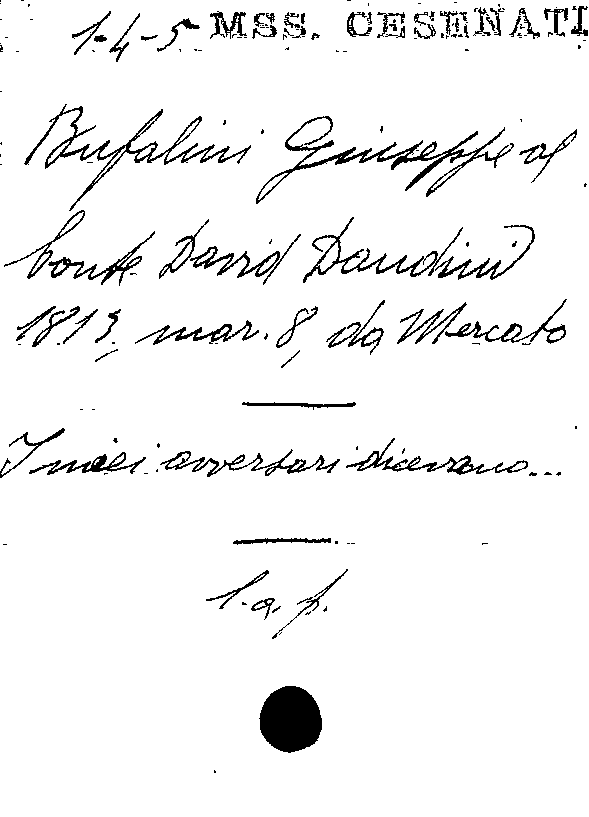 1-4-5 MSS. CESENATI
Bufalini Giuseppe al
Conte David Dandini
1813, mar. 8, da Mercato
I miei avversari dicevano...
l. a. f.